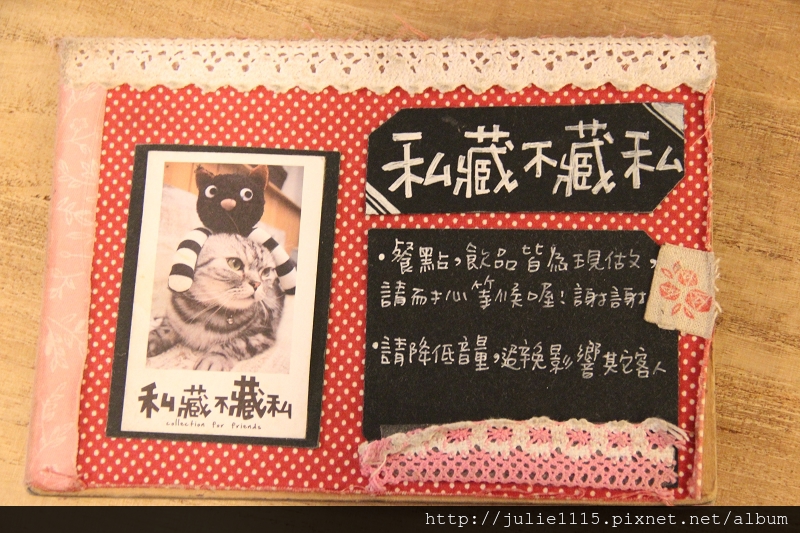 私藏不藏私
•餐點,飲品皆為現做ㄛ,
請耐心等候喔!謝謝
•請降低音量,避免影響其它客人
私藏不藏私
collection for friends
http://julie1115.pixnet.net/album